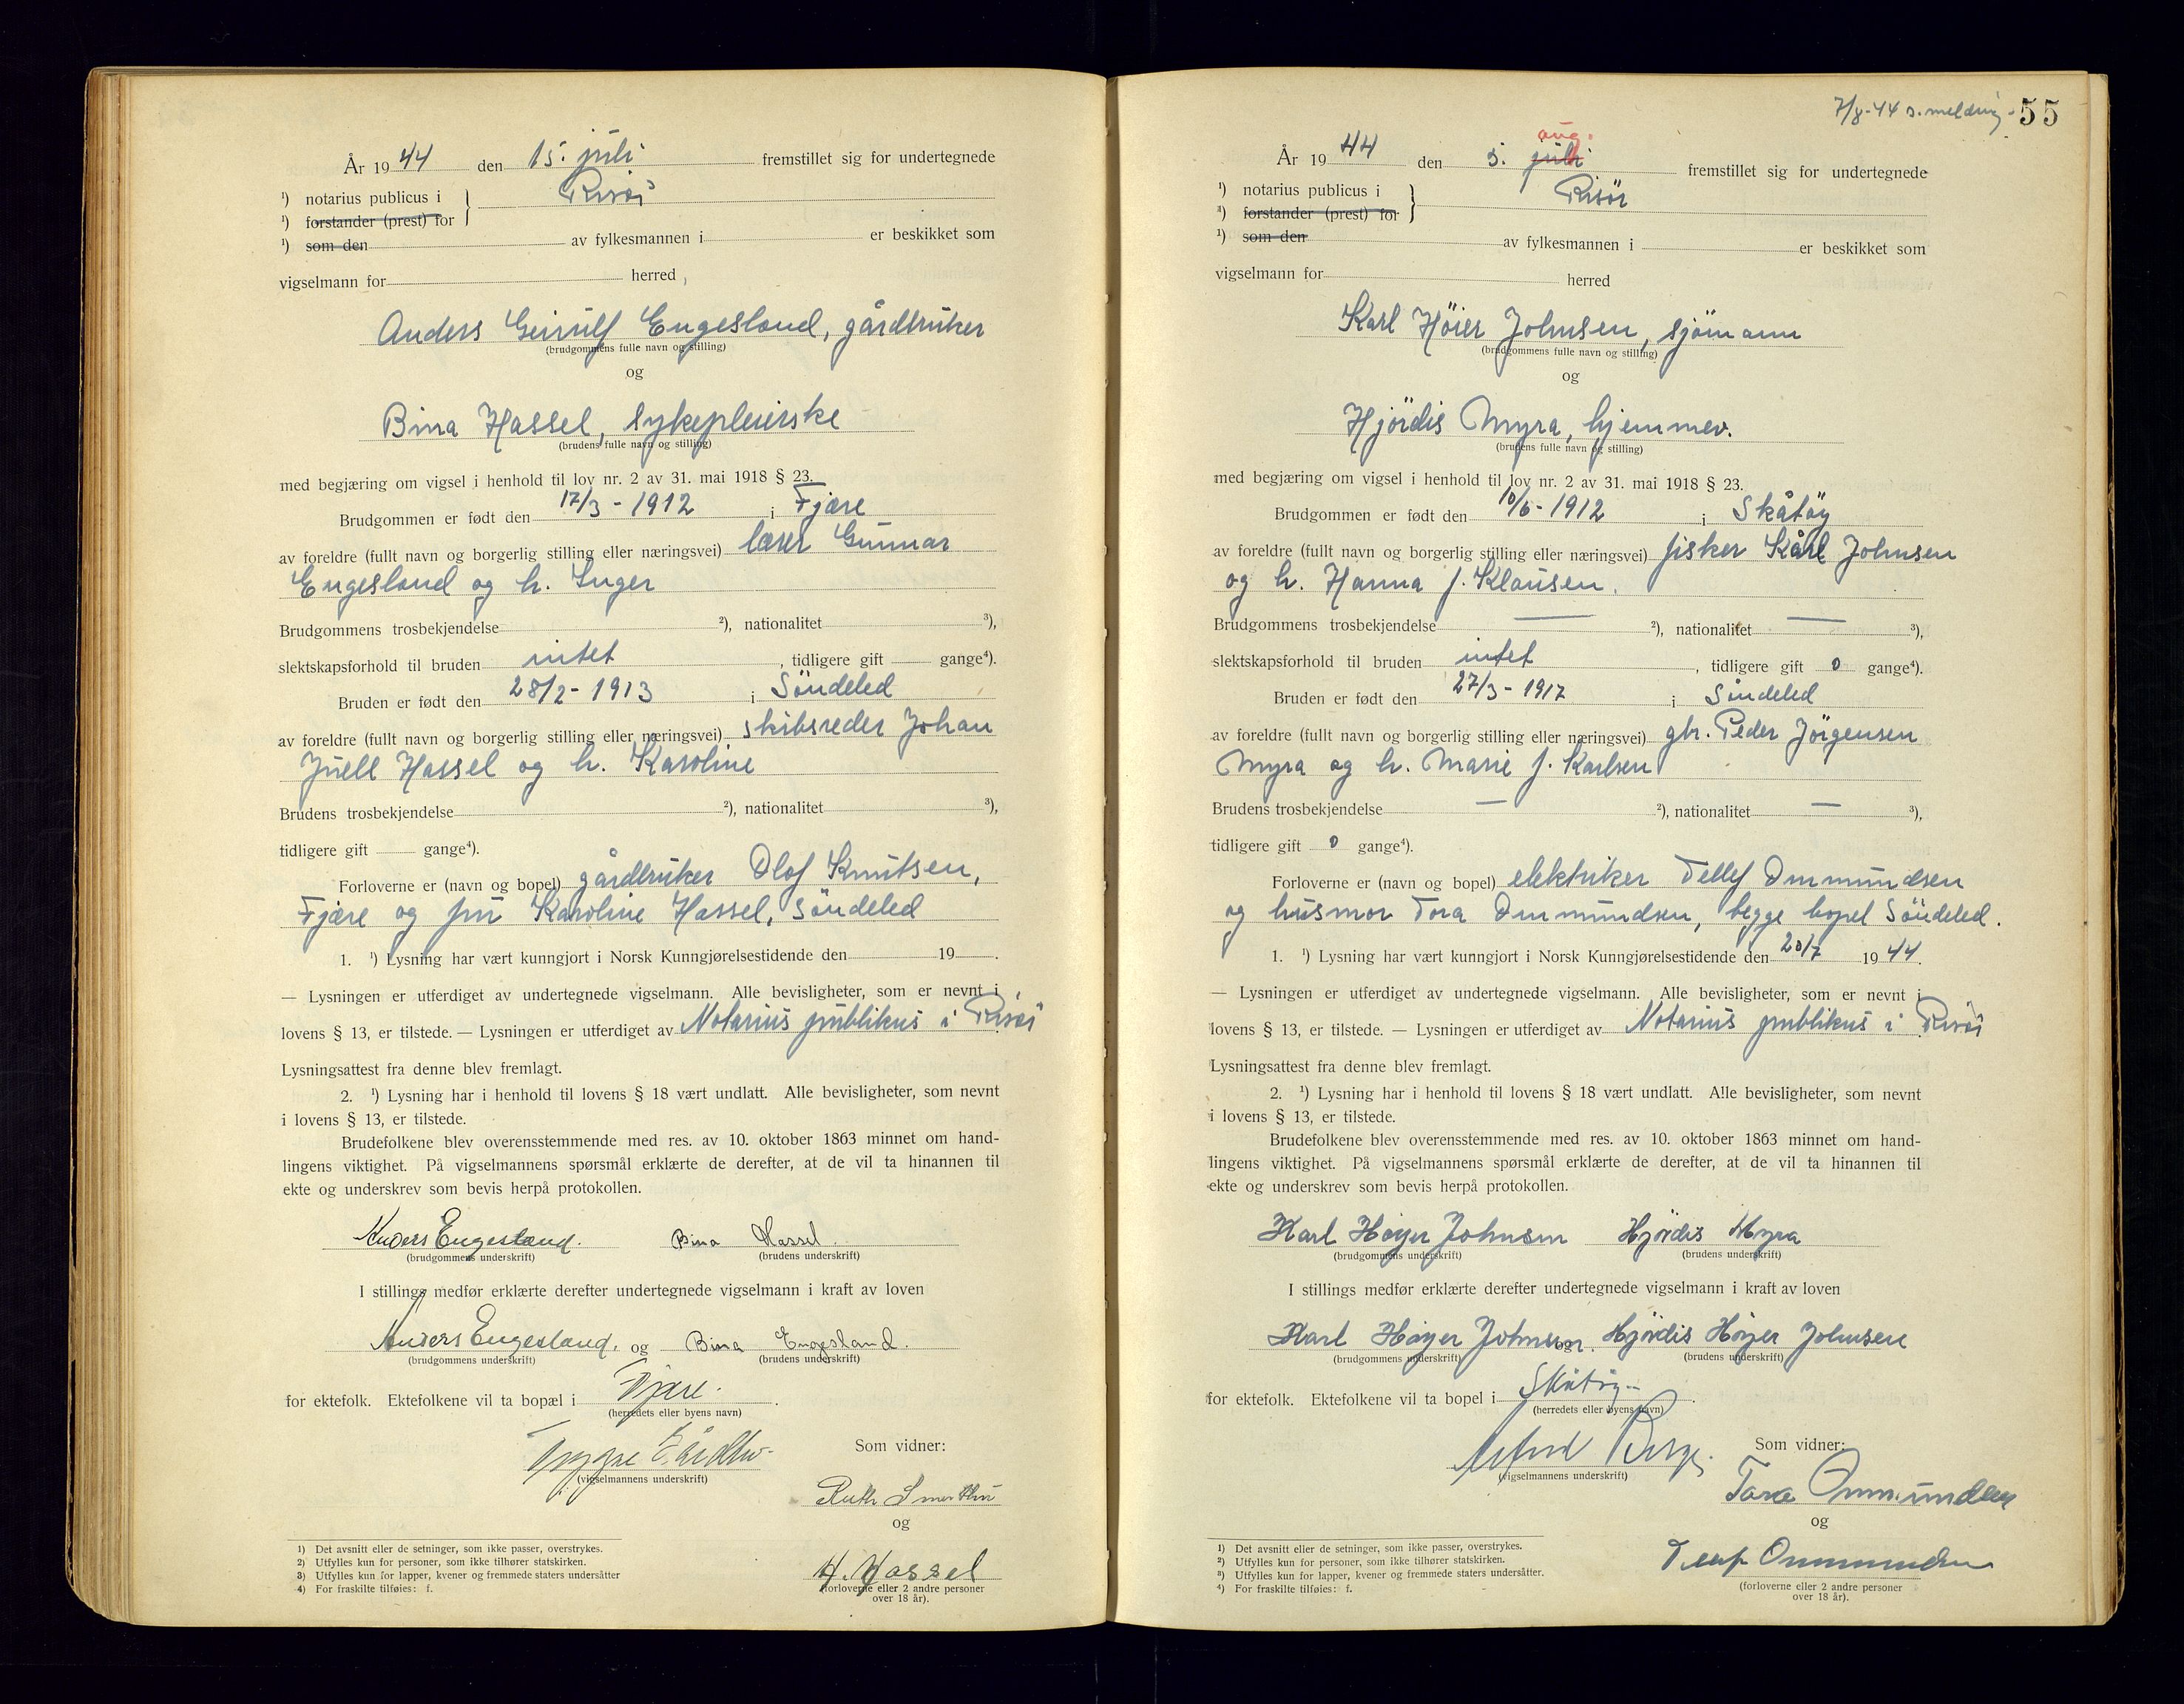 År 1944 den 15. juli fremstillet sig for undertegnede
¹) notarius publicus i
Risør
¹) forstander (prest) for
¹) som den av fylkesmannen i er beskikket som
vigselmann for herred,
Anders Geirulf Engesland, gårdbruker
(brudgommens fulle navn og stilling)
og
Bina Hassel, sykepleierske
(brudens fulle navn og stilling)
med begjæring om vigsel i henhold til lov nr. 2 av 31. mai 1918 § 23.
Brudgommen er født den 17/3 - 1912 i Fjære
av foreldre (fullt navn og borgerlig stilling eller næringsvei) lærer Gunnar
Engesland og h. Inger
Brudgommens trosbekjendelse ²), nationalitet ³),
slektskapsforhold til bruden intet, tidligere gift gange⁴).
Bruden er født den 28/2 - 1913 i Söndeled
av foreldre (fullt navn og borgerlig stilling eller næringsvei) skibsreder Johan
Juell Hassel og h. Karoline
Brudens trosbekjendelse ²), nationalitet ³),
tidligere gift gange⁴).
Forloverne er (navn og bopel) gårdbruker Olof Knutsen,
Fjære og fru Karoline Hassel, Söndeled
1. ¹) Lysning har vært kunngjort i Norsk Kunngjørelsestidende den 19 .
— Lysningen er utferdiget av undertegnede vigselmann. Alle bevisligheter, som er nevnt i
lovens § 13, er tilstede. — Lysningen er utferdiget av Notarius publikus i Risör
Lysningsattest fra denne blev fremlagt.
2. ¹) Lysning har i henhold til lovens § 18 vært undlatt. Alle bevisligheter, som nevnt
i lovens § 13, er tilstede.
Brudefolkene blev overensstemmende med res. av 10. oktober 1863 minnet om hand-
lingens viktighet. På vigselmannens spørsmål erklærte de derefter, at de vil ta hinannen til
ekte og underskrev som bevis herpå protokollen.
Anders Engesland. Bina Hassel.
(brudgommens underskrift) (brudens underskrift)
I stillings medfør erklærte derefter undertegnede vigselmann i kraft av loven
Anders Engesland. og Bina Engesland.
(brudgommens underskrift) (brudens underskrift)
for ektefolk. Ektefolkene vil ta bopæl i Fjære.
(herredets eller byens navn)
Som vidner:
(vigselmannens underskrift)
Ruth
og
H. Hassel
(forloverne eller 2 andre personer
over 18 år).
1) Det avsnitt eller de setninger, som ikke passer, overstrykes.
2) Utfylles kun for personer, som ikke tilhører statskirken.
3) Utfylles kun for lapper, kvener og fremmede staters undersåtter
4) For fraskilte tilføies: f.
7/8-44 s. melding. 55
aug.
År 1944 den 5. juli fremstillet sig for undertegnede
¹) notarius publicus i
Risör
¹) forstander (prest) for
¹) som den av fylkesmannen i er beskikket som
vigselmann for herred
Karl Höier Johnsen, sjömann
(brudgommens fulle navn og stilling)
og
Hjördis Myra, hjemmev.
(brudens fulle navn og stilling)
med begjæring om vigsel i henhold til lov nr. 2 av 31. mai 1918 § 23.
Brudgommen er født den 10/6 - 1912 i Skåtöy
av foreldre (fullt navn og borgerlig stilling eller næringsvei) fisker Karl Johnsen
og h. Hanna f. Klausen.
Brudgommens trosbekjendelse — ²), nationalitet — ³),
slektskapsforhold til bruden intet, tidligere gift 0 gange⁴).
Bruden er født den 27/3 - 1917 i Söndeled
av foreldre (fullt navn og borgerlig stilling eller næringsvei) gbr. Peder Jörgensen
Myra og h. Marie f. Karlsen
Brudens trosbekjendelse — ²), nationalitet — ³),
tidligere gift 0 gange⁴).
Forloverne er (navn og bopel) elektriker Tellef Ommundsen
og husmor Tora Ommundsen, begge bopel Söndeled.
1. ¹) Lysning har vært kunngjort i Norsk Kunngjørelsestidende den 20/7 1944.
— Lysningen er utferdiget av undertegnede vigselmann. Alle bevisligheter, som er nevnt i
lovens § 13, er tilstede. — Lysningen er utferdiget av Notarius publikus i Risör
Lysningsattest fra denne blev fremlagt.
2. ¹) Lysning har i henhold til lovens § 18 vært undlatt. Alle bevisligheter, som nevnt
i lovens § 13, er tilstede.
Brudefolkene blev overensstemmende med res. av 10. oktober 1863 minnet om hand-
lingens viktighet. På vigselmannens spørsmål erklærte de derefter, at de vil ta hinannen til
ekte og underskrev som bevis herpå protokollen.
Karl Høyer Johnsen Hjördis Myra
(brudgommens underskrift) (brudens underskrift)
I stillings medfør erklærte derefter undertegnede vigselmann i kraft av loven
Karl Høyer Johnsen. og Hjördis Höyer Johnsen
(brudgommens underskrift) (brudens underskrift)
for ektefolk. Ektefolkene vil ta bopel i Skåtøy
(herredets eller byens navn)
Som vidner:
(vigselmannens underskrift)
Tora Ommundsen
og
Ommundsen
(forloverne eller 2 andre personer
over 18 år).
1) Det avsnitt eller de setninger, som ikke passer, overstrykes.
2) Utfylles kun for personer, som ikke tilhører statskirken.
3) Utfylles kun for lapper, kvener og fremmede staters undersåtter.
4) For fraskilte tilføies: f.